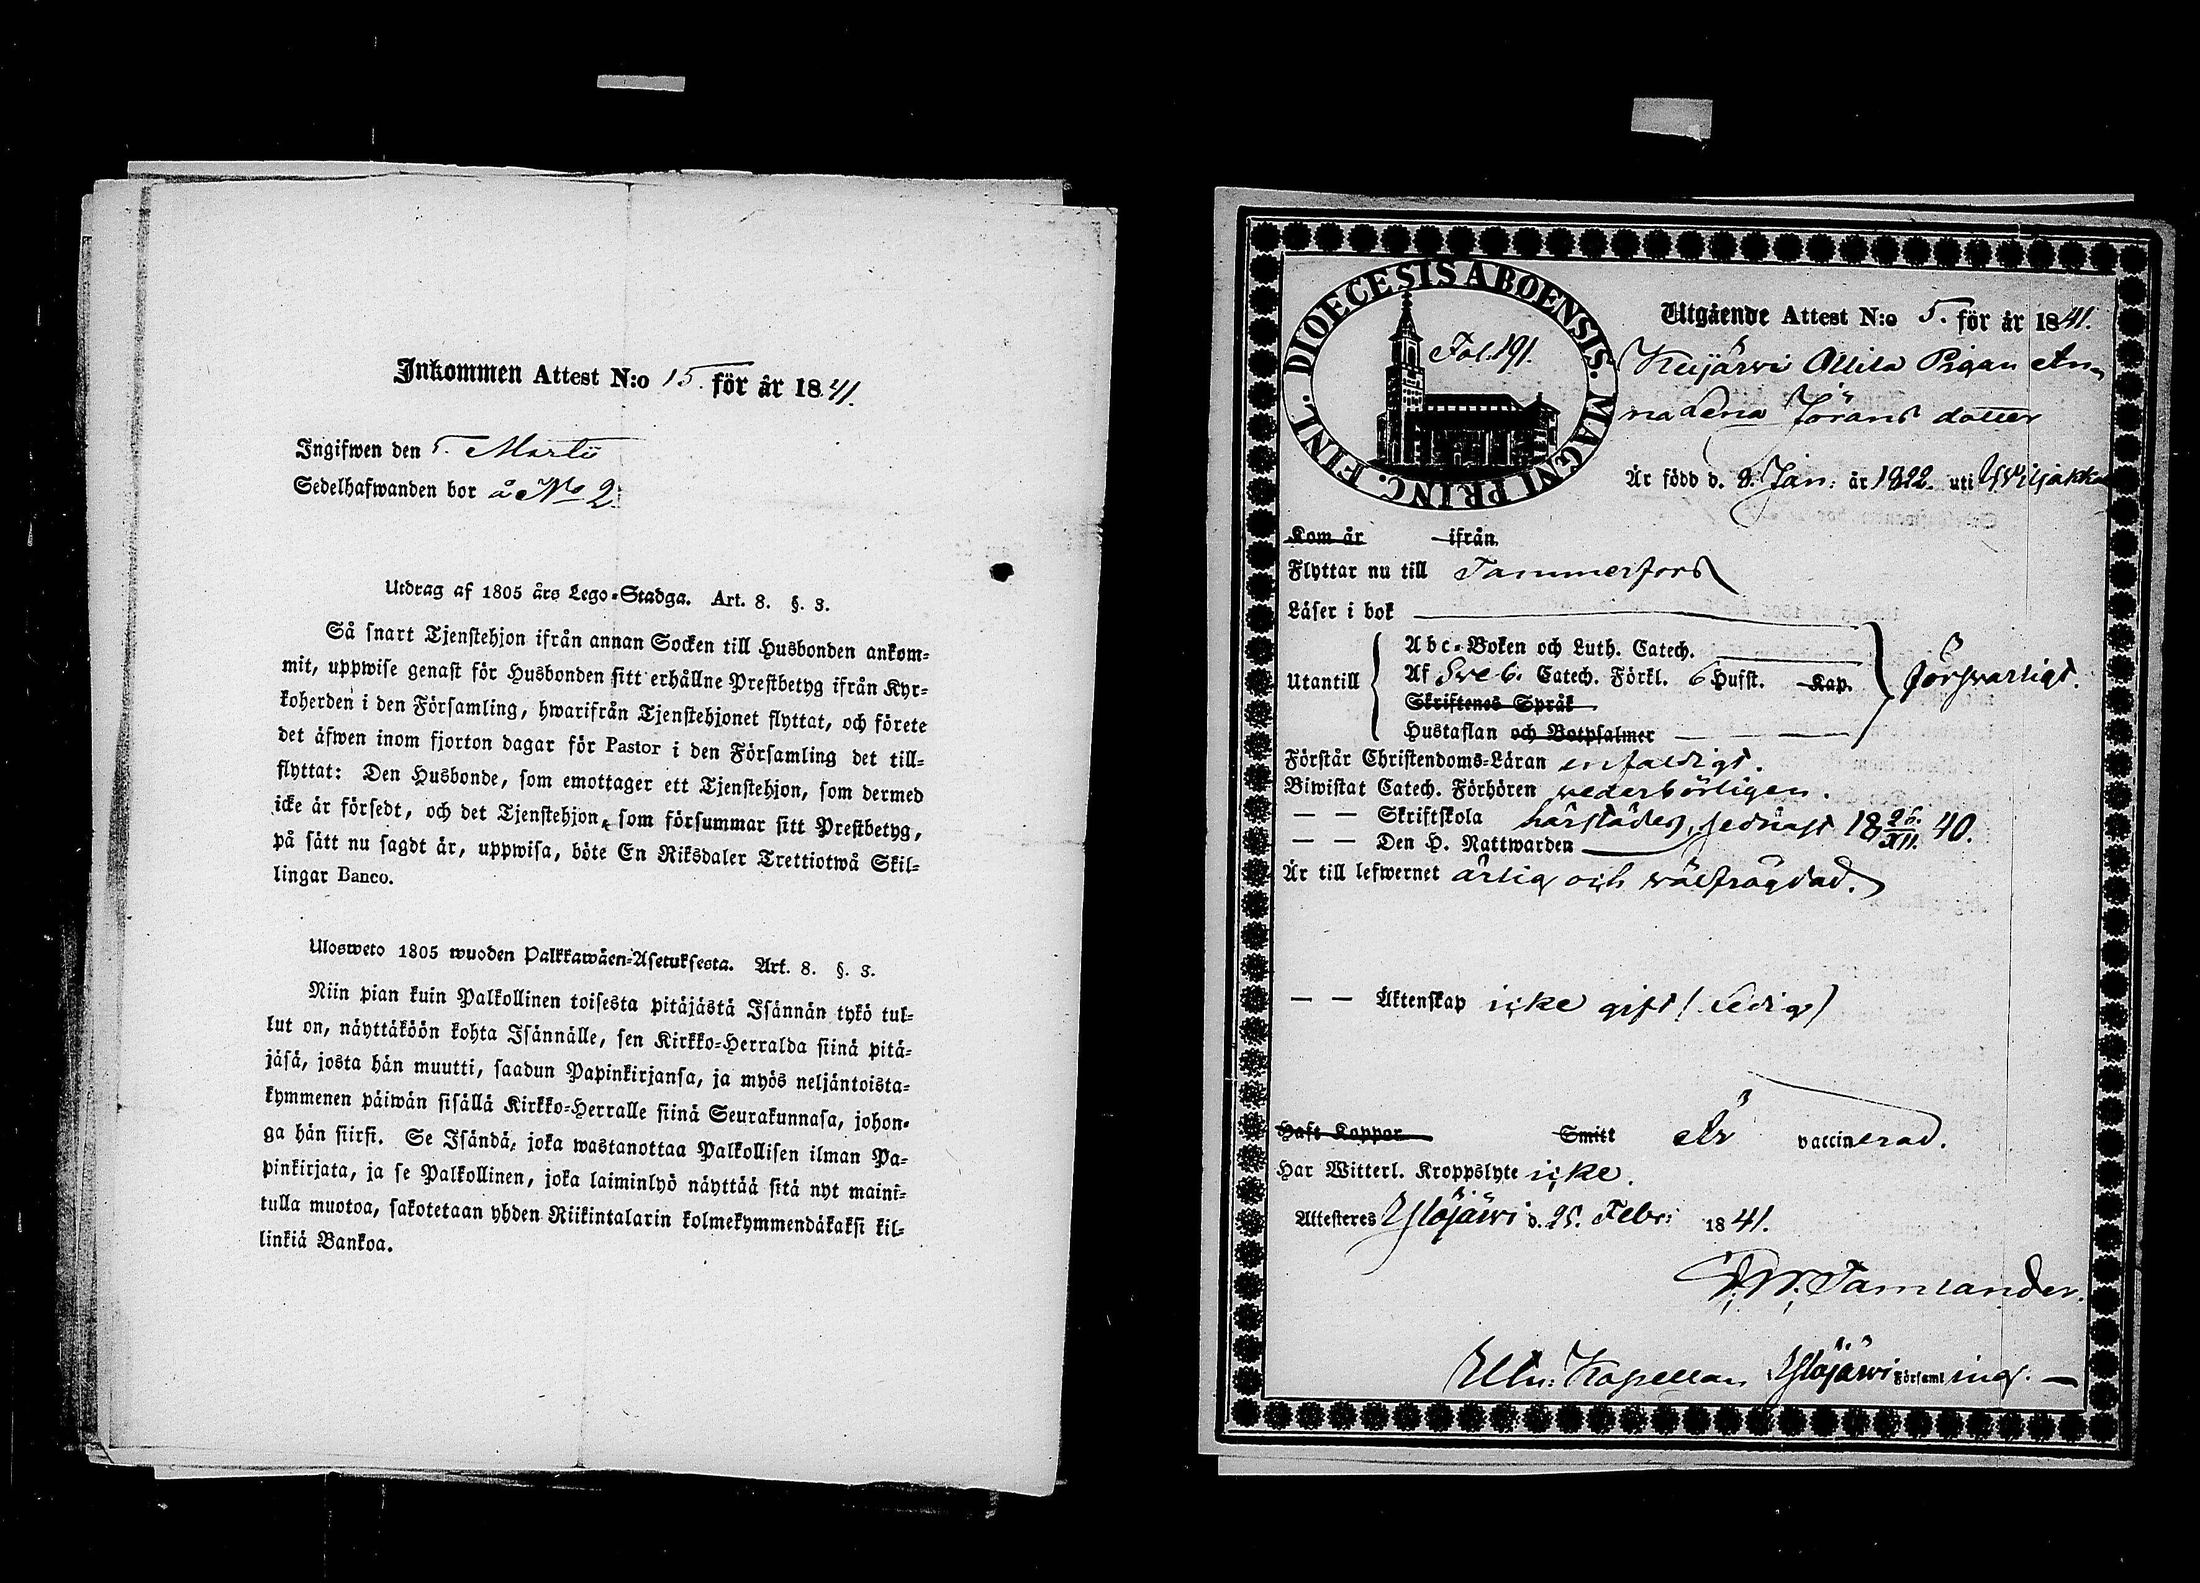 Inkommen Attest N:o 15. för år 1841.
Ingifwen den 5. Martii
Sedelhafwanden bor å No 2.
Utdrag af 1805 års Lego-Stadga. Art. 8. §. 3.
Så snart Tjenstehjon ifrån annan Socken till Husbonden ankom-
mit, uppwise genast för Husbonden sitt erhållne Prestbetyg ifrån Kyr-
koherden i den Församling, hwarifrån Tjenstehjonet flyttat, och förete
det äfwen inom fjorton dagar för Pastor i den Församling det till-
flyttat: Den Husbonde, som emottager ett Tjenstehjon, som dermed
icke är försedt, och det Tjenstehjon, som försummar sitt Prestbetyg,
på sätt nu sagdt är, uppwisa, böte En Riksdaler Trettiotwå Skil-
lingar Banco.
Ulosweto 1805 wuoden Palkkawäen-Asetuksesta. Art. 8. §. 3.
Niin pian kuin Palkollinen toisesta pitäjästä Isännän tykö tul-
lut on, näyttäköön kohta Isännälle, sen Kirkko-Herralda siinä pitä-
jäsä, josta hän muutti, saadun Papinkirjansa, ja myös neljäntoista-
kymmenen päiwän sisällä Kirkko-Herralle siinä Seurakunnasa, johon-
ga hän siirsi. Se Isändä, joka wastanottaa Palkollisen ilman Pa-
pinkirjata, ja se Palkollinen, joka laiminlyö näyttää sitä nyt maini-
tulla muotoa, sakotetaan yhden Riikintalarin kolmekymmendäkaksi kil-
linkiä Bankoa.
DIOECESIS ABOENSIS. MAGNI PRINC. FINL.
Fol. 191.
Utgående Attest N:o 5. för år 1841.
Keijärwi Ollila Pigan An-
na Lena Jörans dotter
Är född d. 9. Jan: år 1822. uti Wiljakka
Kom år ifrån
Flyttar nu till Tammerfors
Läser i bok
Utantill
Abc-Boken och Luth. Catech.
Af Sveb. Catech. Förkl. 6 Hufst. Kap.
Skriftenes Språk
Hustaflan och Botpsalmer
försvarligt.
Förstår Christendoms-Läran enfaldigt.
Biwistat Catech. Förhören vederbörligen.
— — Skriftskola härstädes, sednast 18 26/XII. 40.
— — Den H. Nattwarden
Är till lefwernet ärlig och välfrägdad.
— — Äktenskap icke gift (ledig)
Haft Koppor Smitt Är vaccinerad.
Har Witterl. Kroppslyte icke.
Attesteres Ylöjärvi d. 25. Febr: 1841.
Tamlander.
Kapellan Ylöjärvi Församling. —